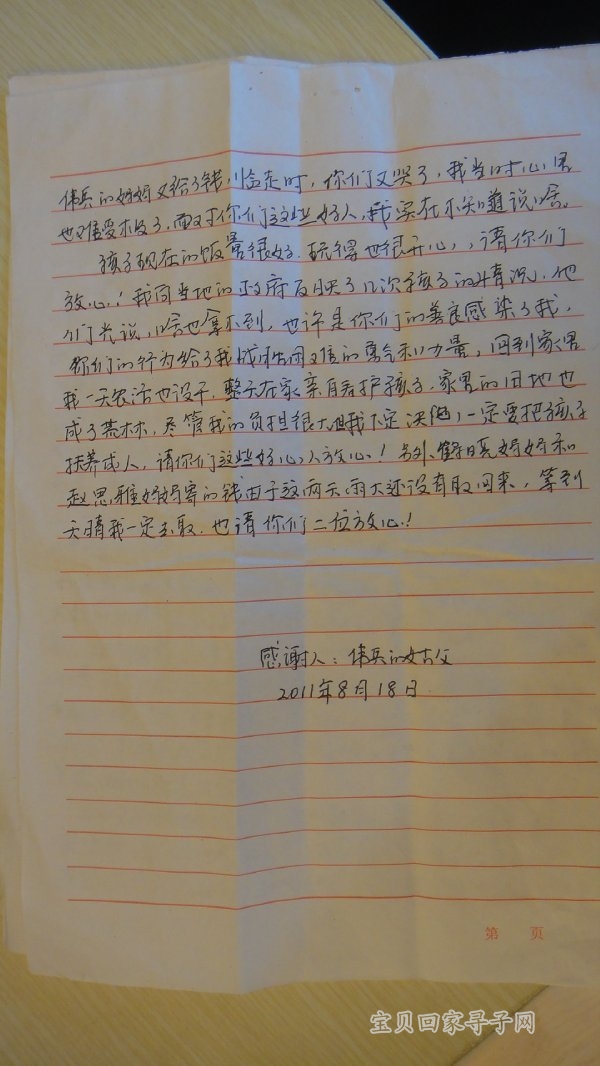 伟兵的妈妈又给了钱，临走时，你们又哭了，我当时心里
也难受极了，面对你们这些好人，我实在不知道说啥。
孩子现在的饭量很好，玩得也很开心，，请你们
放心！我向当地的政府反映了几次孩子的情况，他
们光说，啥也拿不到，也许是你们的善良感染了我，
你们的行为给了我战胜困难的勇气和力量，回到家里
我一天农活也没干，整天在家亲自看护孩子，家里的旧地也
成了荒林，尽管我的负担很大但我下定决心，一定要把孩子
扶养成人，请你们这些好心人放心！另外、晨妈妈和
赵思雅妈妈寄的钱由于这两天雨大还没有取回来，等到
天晴我一定去取，也请你们二位放心！
感谢人：伟兵的姑父
2011年8月18日
第 页
宝贝回家寻子网